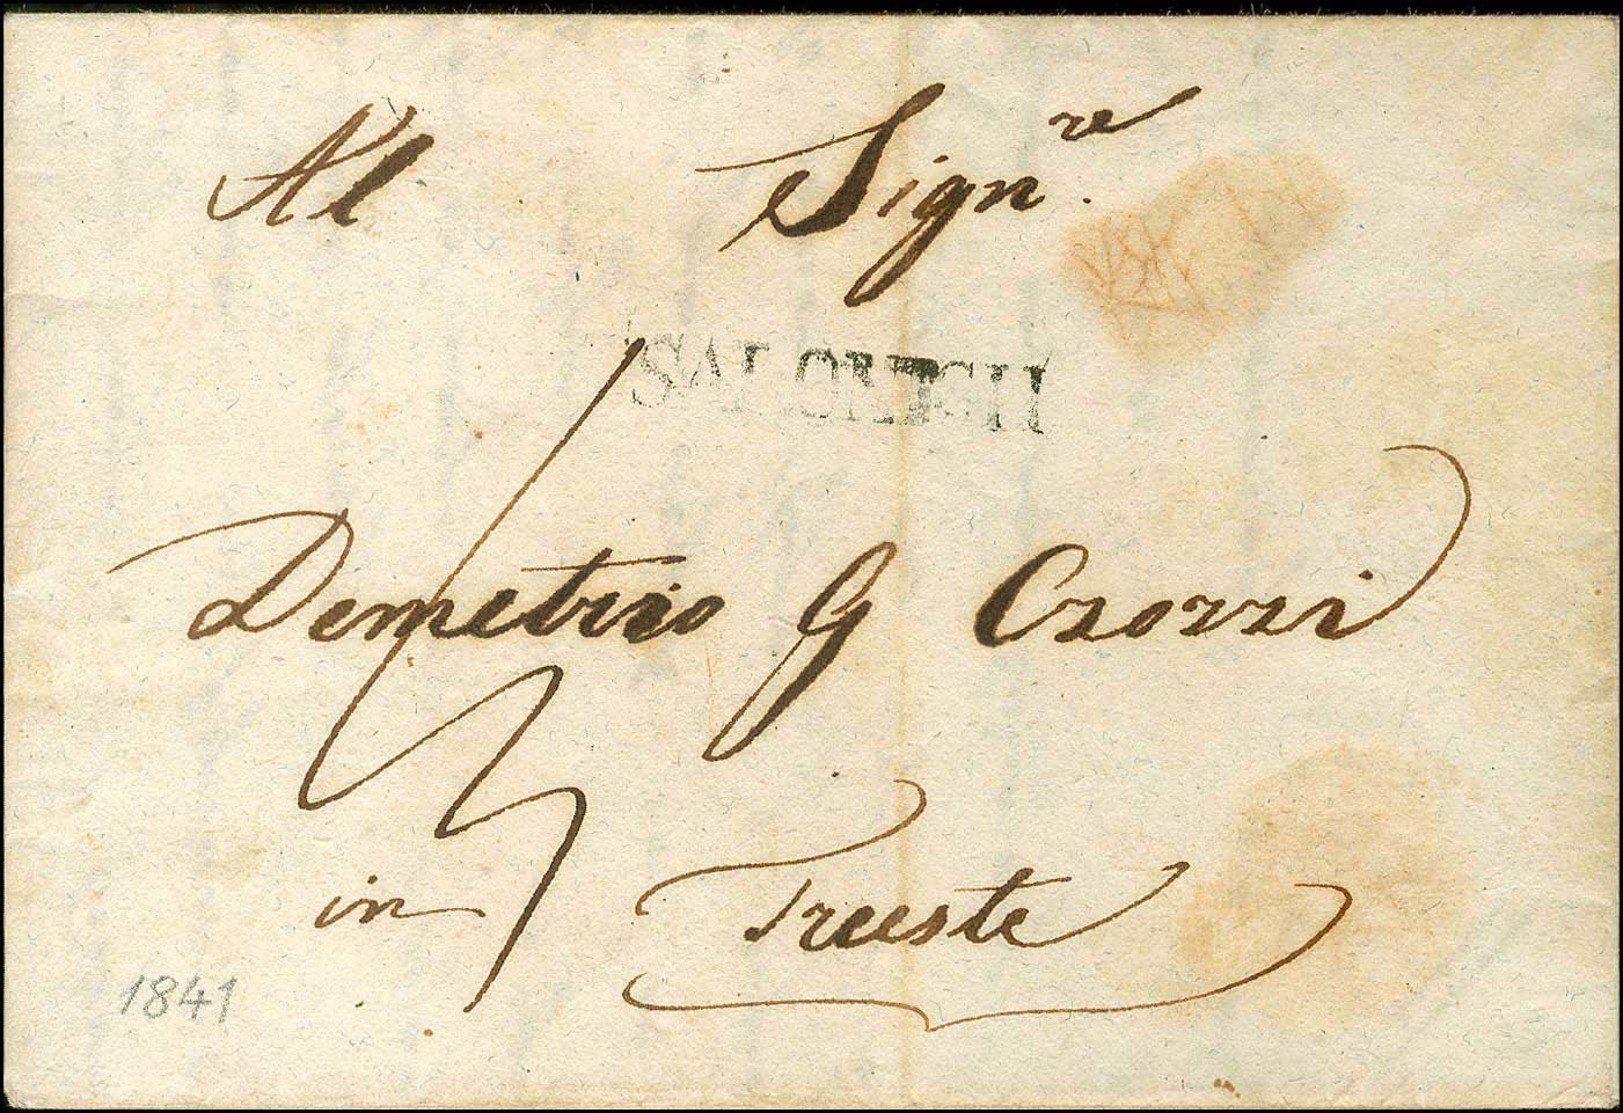 Al Signre.
SALONICH
Demetrio G Czorzi
in Trieste
1841